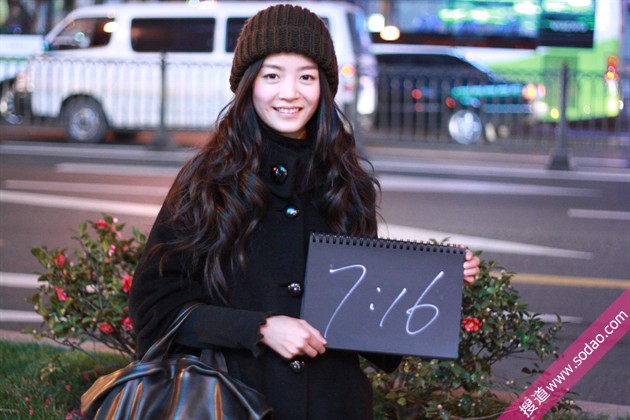 7:16
搜道 www.sodao.com